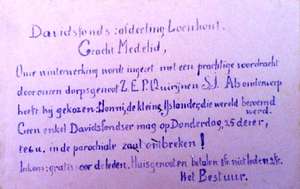 Davidsfonds afdeeling Loenhout.
Geacht Medelid,
Onze winterwerking wordt ingezet met een prachtige voordracht
door onzen dorpsgenoot Z.E.P. Quirijnen S.J. Als onderwerp
heeft hij gekozen: Nonni, de kleine IJslander, die wereld beroemd
werd.
Geen enkel Davidsfondser mag op Donderdag, 25 dezer,
te u. in de parochiale zaal ontbreken!
Inkom: gratis voor de leden. Huisgenooten betalen fr. niet leden fr.
Het Bestuur.